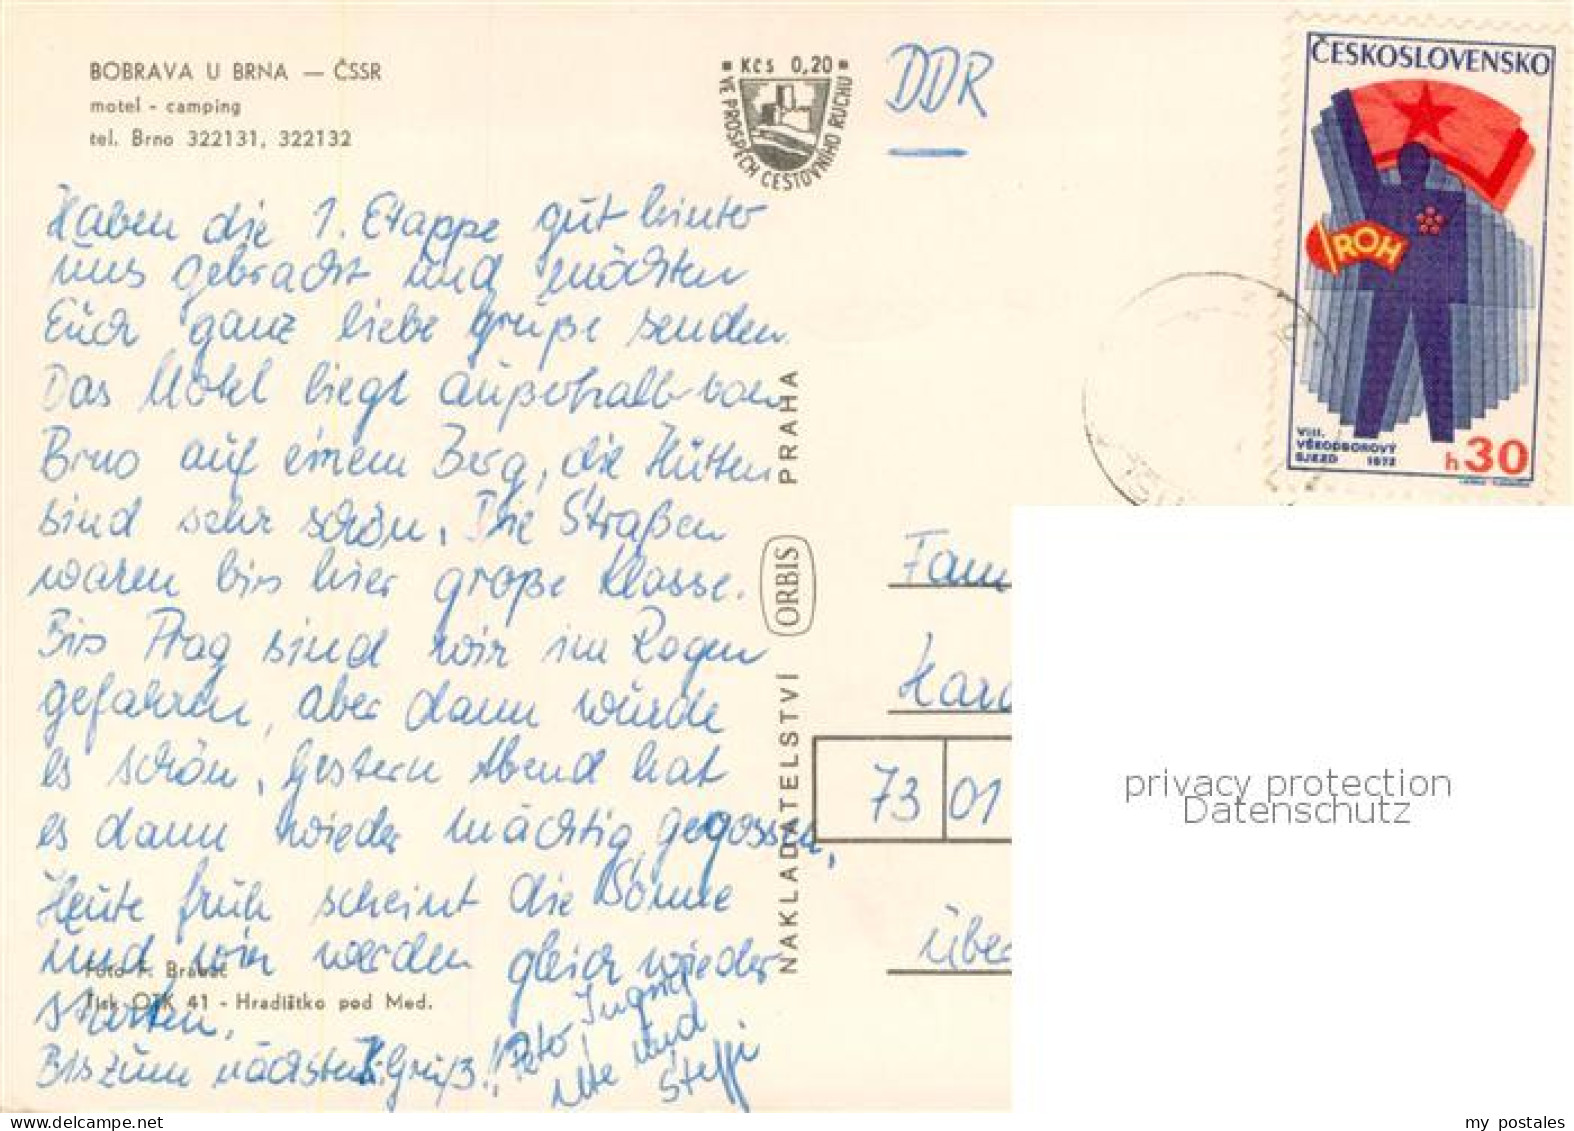 BOBRAVA U BRNA — ČSSR
motel - camping
tel. Brno 322131, 322132
Kčs 0,20
VE PROSPĚCH CESTOVNÍHO RUCHU
DDR
ČESKOSLOVENSKO
ROH
VIII.
VŠEODBOROVÝ
SJEZD 1972
h 30
Haben die 1. Etappe gut hinter
uns gebracht und möchten
Euch ganz liebe Grüße senden.
Das Motel liegt außerhalb von
Brno auf einem Berg, die Hütten
sind sehr schön. Die Straßen
waren bis hier große Klasse.
Bis Prag sind wir im Regen
gefahren, aber dann wurde
es schön. Gestern Abend hat
es dann wieder mächtig gegossen.
Heute früh scheint die Sonne
und wir werden gleich wieder
starten.
Bis zum nächsten Gruß!!
Peter, Ingrid
Ute und
Steffi
Foto F. Brabac
Tisk OTK 41 - Hradištko pod Med.
NAKLADATELSTVÍ ORBIS PRAHA
Fam
Kar
73 01
Über
privacy protection
Datenschutz
delcampe.net
my postales